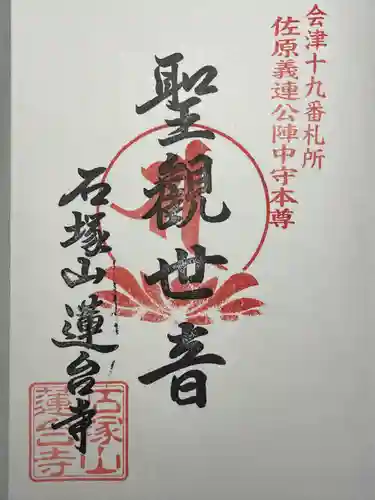 会津十九番札所
佐原義連公陣中守本尊
聖観世音
石塚山蓮台寺
石塚山
蓮台寺